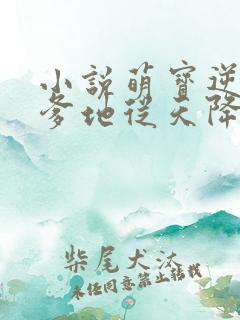 小説萌寶逆
爹地從天降
柴尾犬汰
未經同意禁止轉載